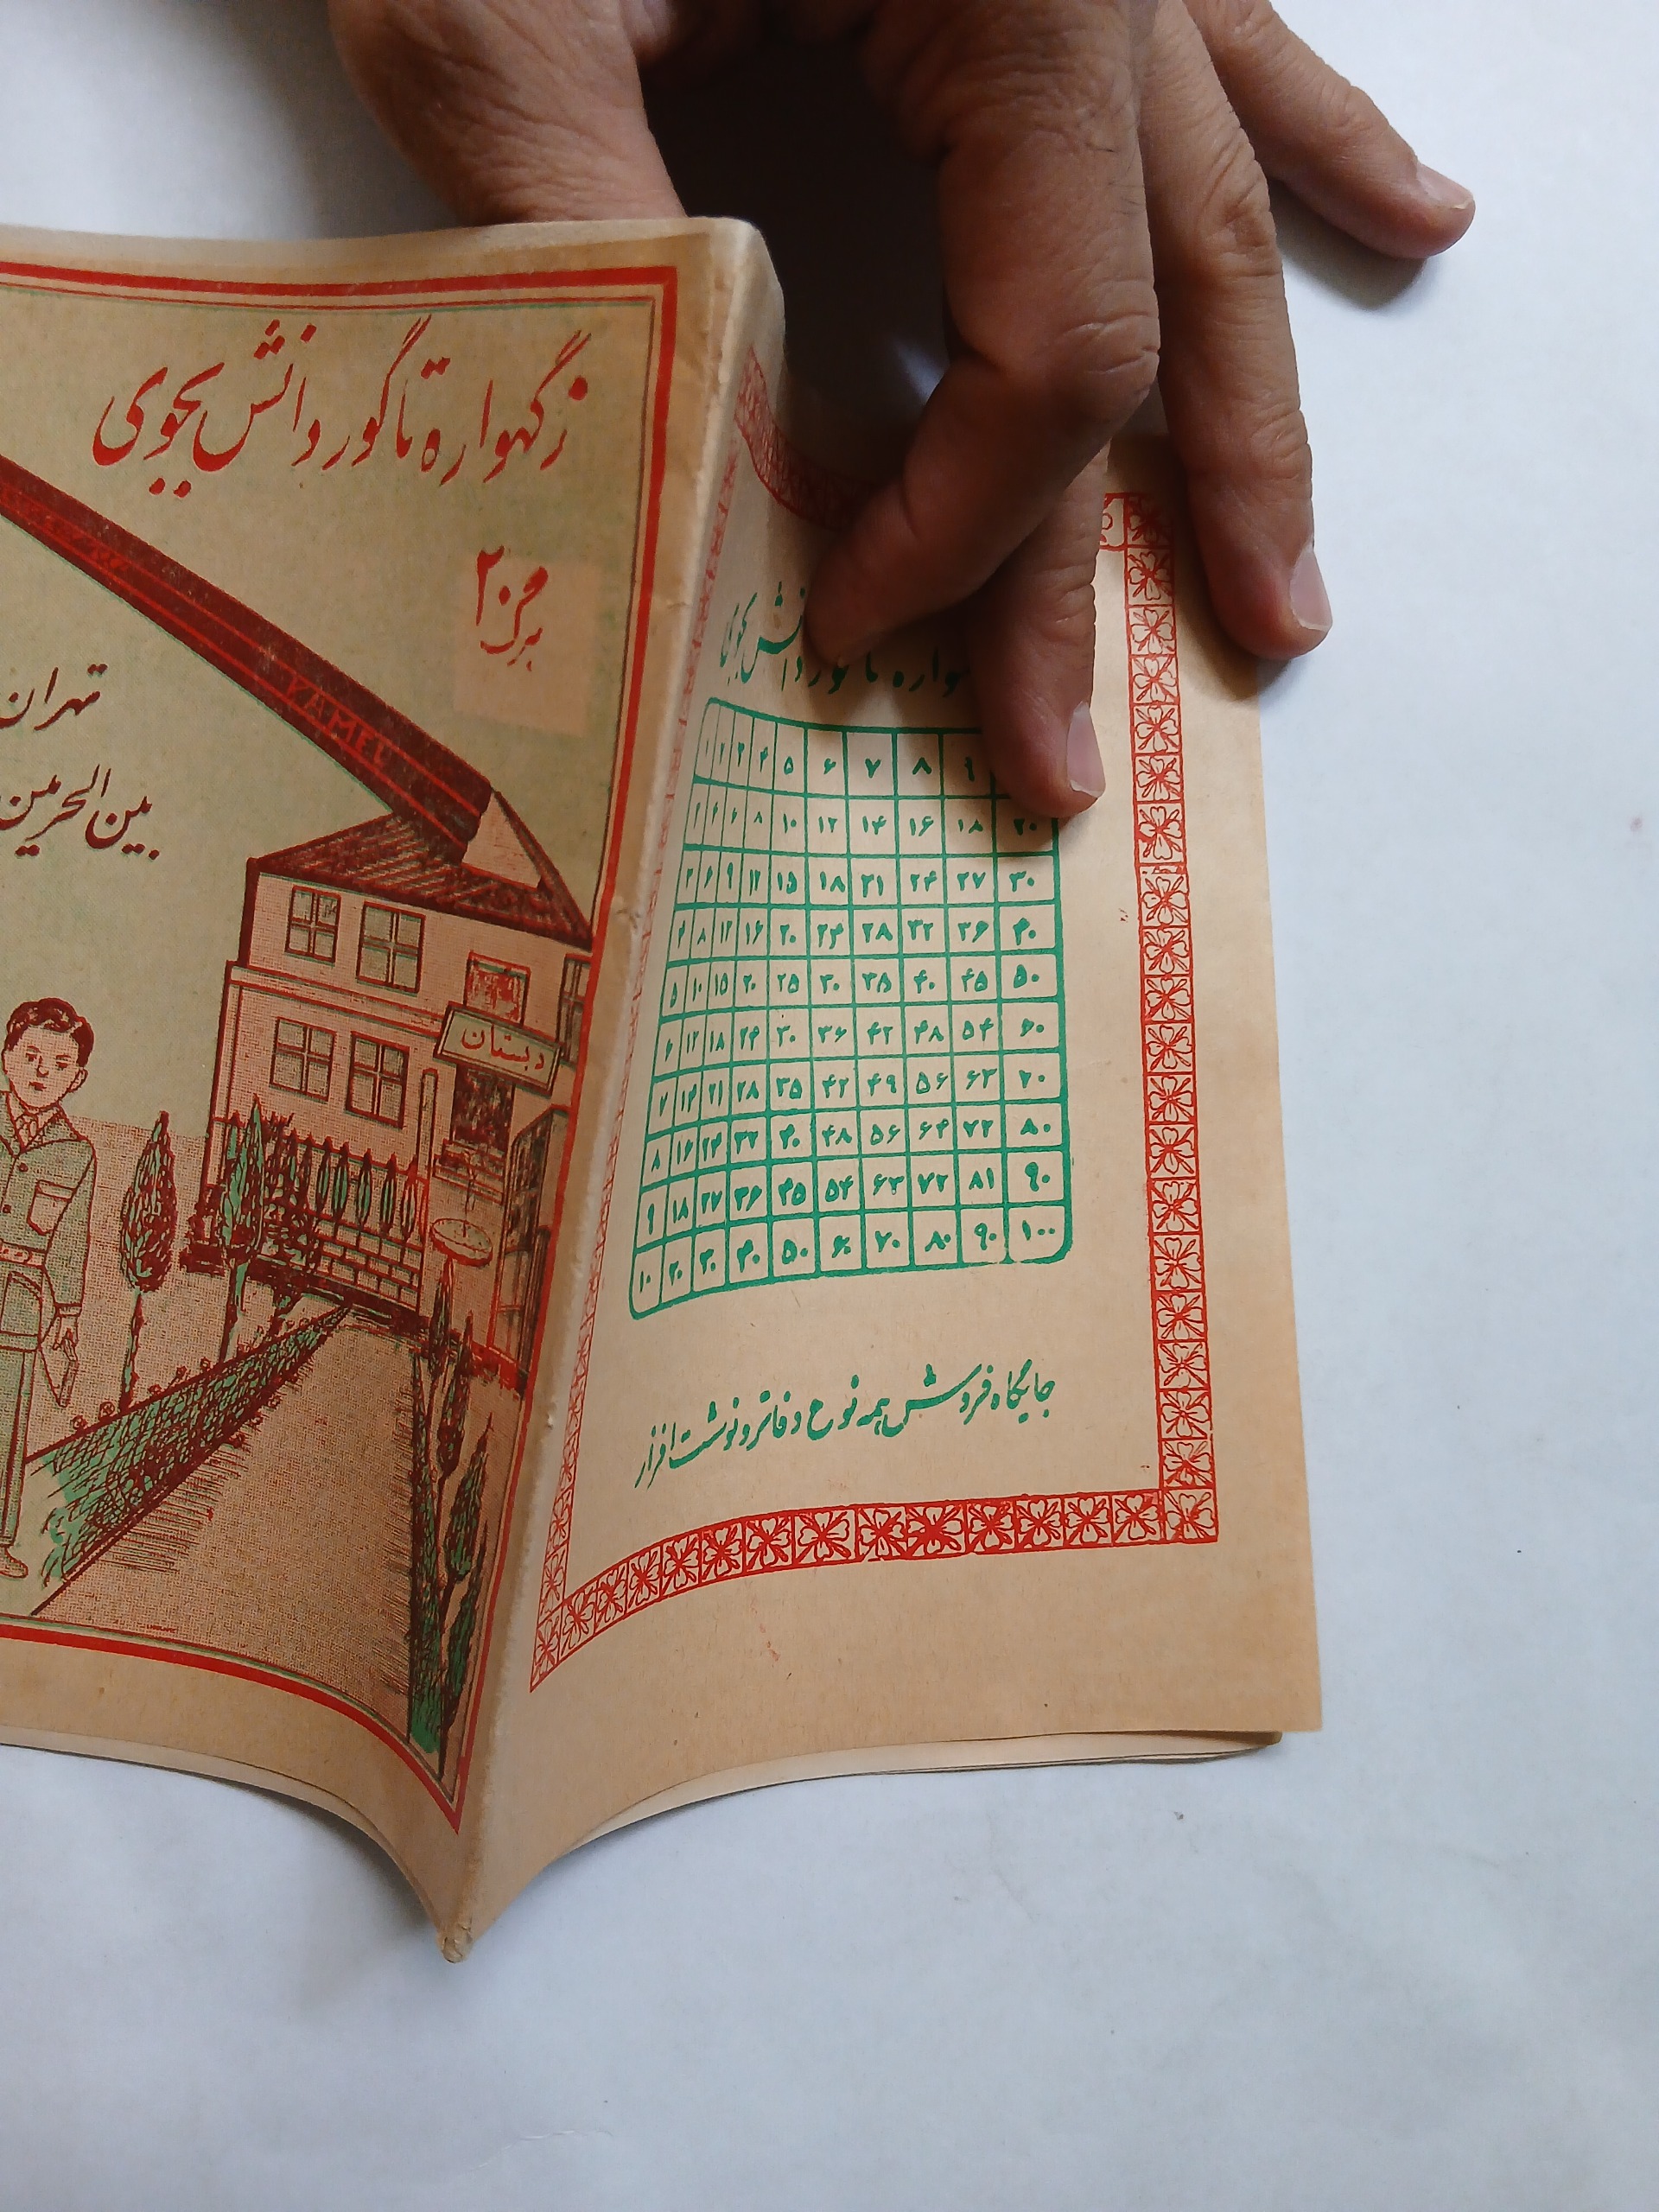 زگهواره تا گور دانش بجوی
۲۰ برگ
تهران
بین الحرمین
دبستان
تا گور دانش بجوی
۱ ۲ ۳ ۴ ۵ ۶ ۷ ۸ ۹
۲ ۴ ۶ ۸ ۱۰ ۱۲ ۱۴ ۱۶ ۱۸ ۲۰
۳ ۶ ۹ ۱۲ ۱۵ ۱۸ ۲۱ ۲۴ ۲۷ ۳۰
۴ ۸ ۱۲ ۱۶ ۲۰ ۲۴ ۲۸ ۳۲ ۳۶ ۴۰
۵ ۱۰ ۱۵ ۲۰ ۲۵ ۳۰ ۳۵ ۴۰ ۴۵ ۵۰
۶ ۱۲ ۱۸ ۲۴ ۳۰ ۳۶ ۴۲ ۴۸ ۵۴ ۶۰
۷ ۱۴ ۲۱ ۲۸ ۳۵ ۴۲ ۴۹ ۵۶ ۶۳ ۷۰
۸ ۱۶ ۲۴ ۳۲ ۴۰ ۴۸ ۵۶ ۶۴ ۷۲ ۸۰
۹ ۱۸ ۲۷ ۳۶ ۴۵ ۵۴ ۶۳ ۷۲ ۸۱ ۹۰
۱۰ ۲۰ ۳۰ ۴۰ ۵۰ ۶۰ ۷۰ ۸۰ ۹۰ ۱۰۰
جایگاه فروش همه نوع دفاتر و نوشت افزار